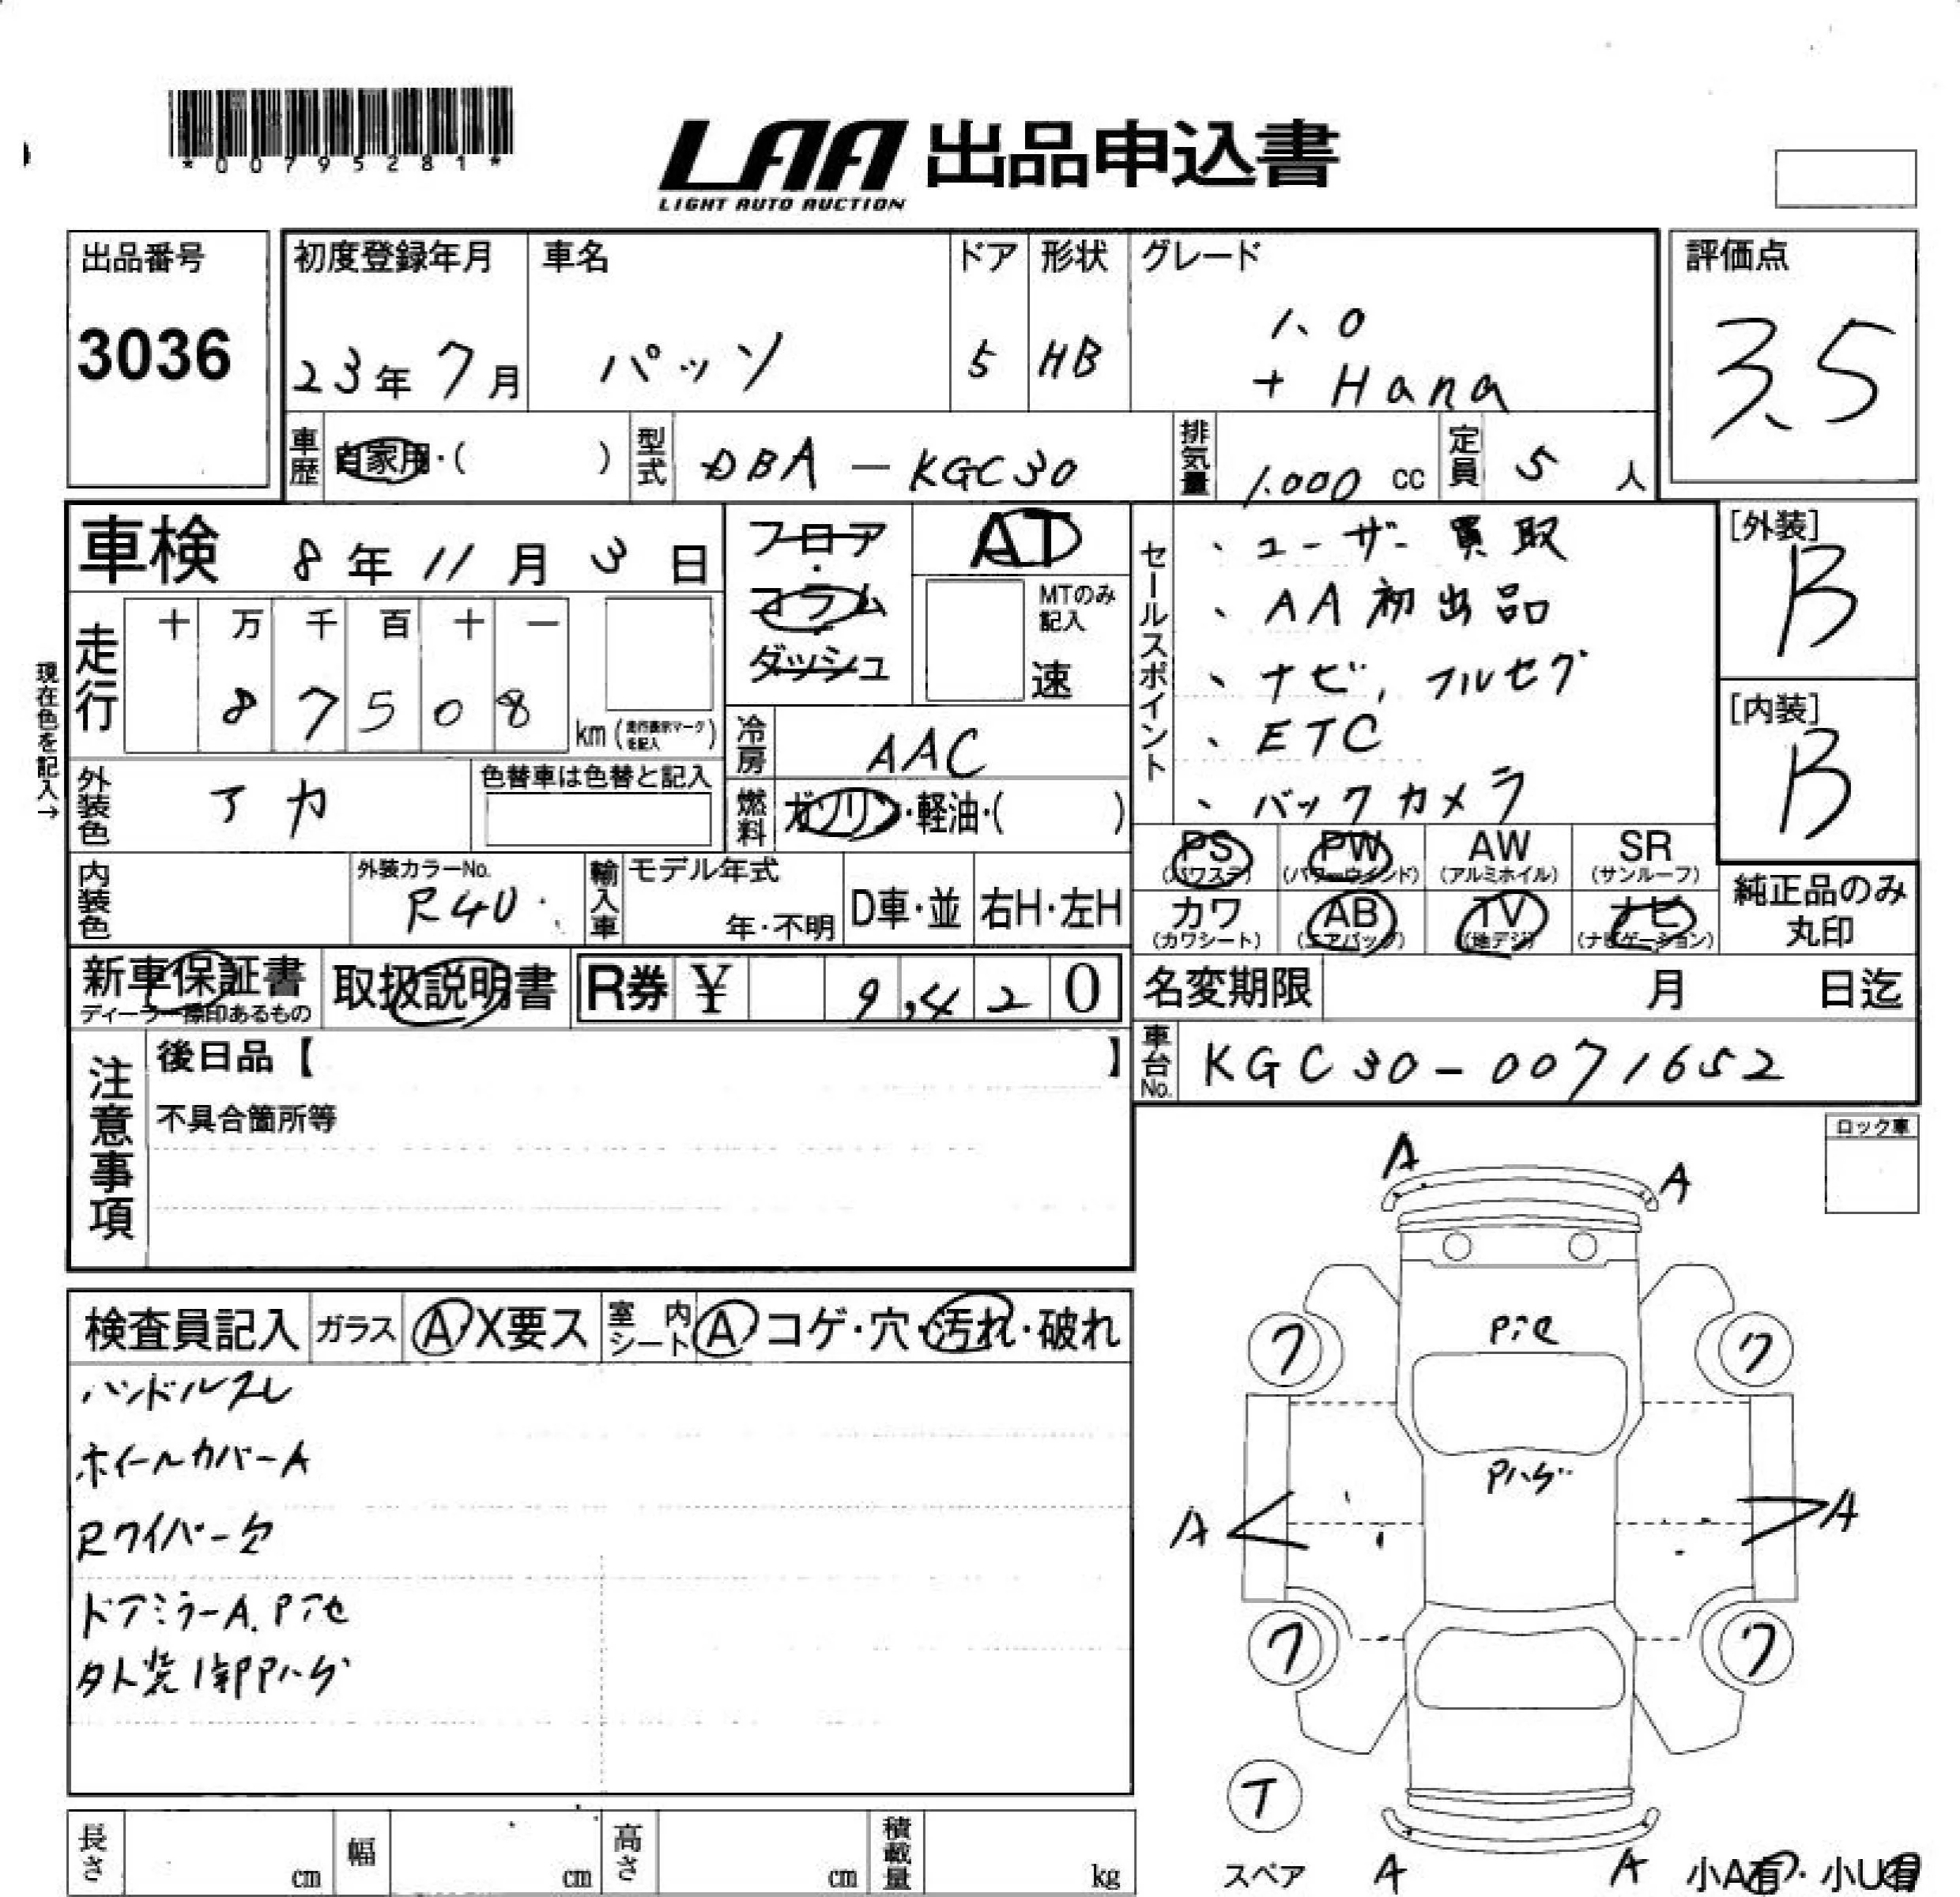 *00795281*
LAA 出品申込書
LIGHT AUTO AUCTION
出品番号
3036
初度登録年月
23年7月
車名
パッソ
ドア
5
形状
HB
グレード
1.0
+ Hana
評価点
3.5
車歴
自家用・( )
型式
DBA-KGC30
排気量
1.000 cc
定員
5 人
車検 8年11月3日
フロア
・
コラム
・
ダッシュ
AT
MTのみ
記入
速
セールスポイント
、ユーザー買取
、AA初出品
、ナビ, フルセグ
、ETC
、バックカメラ
[外装]
B
[内装]
B
現在色を記入→
走行
十 万 千 百 十 一
8 7 5 0 8
km (走行表示マークを記入)
冷房
AAC
外装色
アカ
色替車は色替と記入
燃料
ガソリン・軽油・( )
PS
(パワステ)
PW
(パワーウインド)
AW
(アルミホイル)
SR
(サンルーフ)
カワ
(カワシート)
AB
(エアバッグ)
TV
(地デジ)
ナビ
(ナビゲーション)
純正品のみ
丸印
内装色
外装カラーNo.
R40
輸入車
モデル年式
年・不明
D車・並
右H・左H
新車保証書
ディーラー標印あるもの
取扱説明書
R券 ¥ 9,420
名変期限 月 日迄
車台No.
KGC30-0071652
注意事項
後日品【 】
不具合箇所等
ロック車
検査員記入
ガラス
A X要ス
室内シート
A コゲ・穴・汚れ・破れ
ハンドルスレ
ホイールカバーA
Rワイパー欠
ドアミラーA.Pアセ
外装1部Pハゲ
A
A
Pアセ
フ
フ
Pハゲ
A
A
フ
フ
T
スペア
A
A
小A有・小U有
長さ cm
幅 cm
高さ cm
積載量 kg